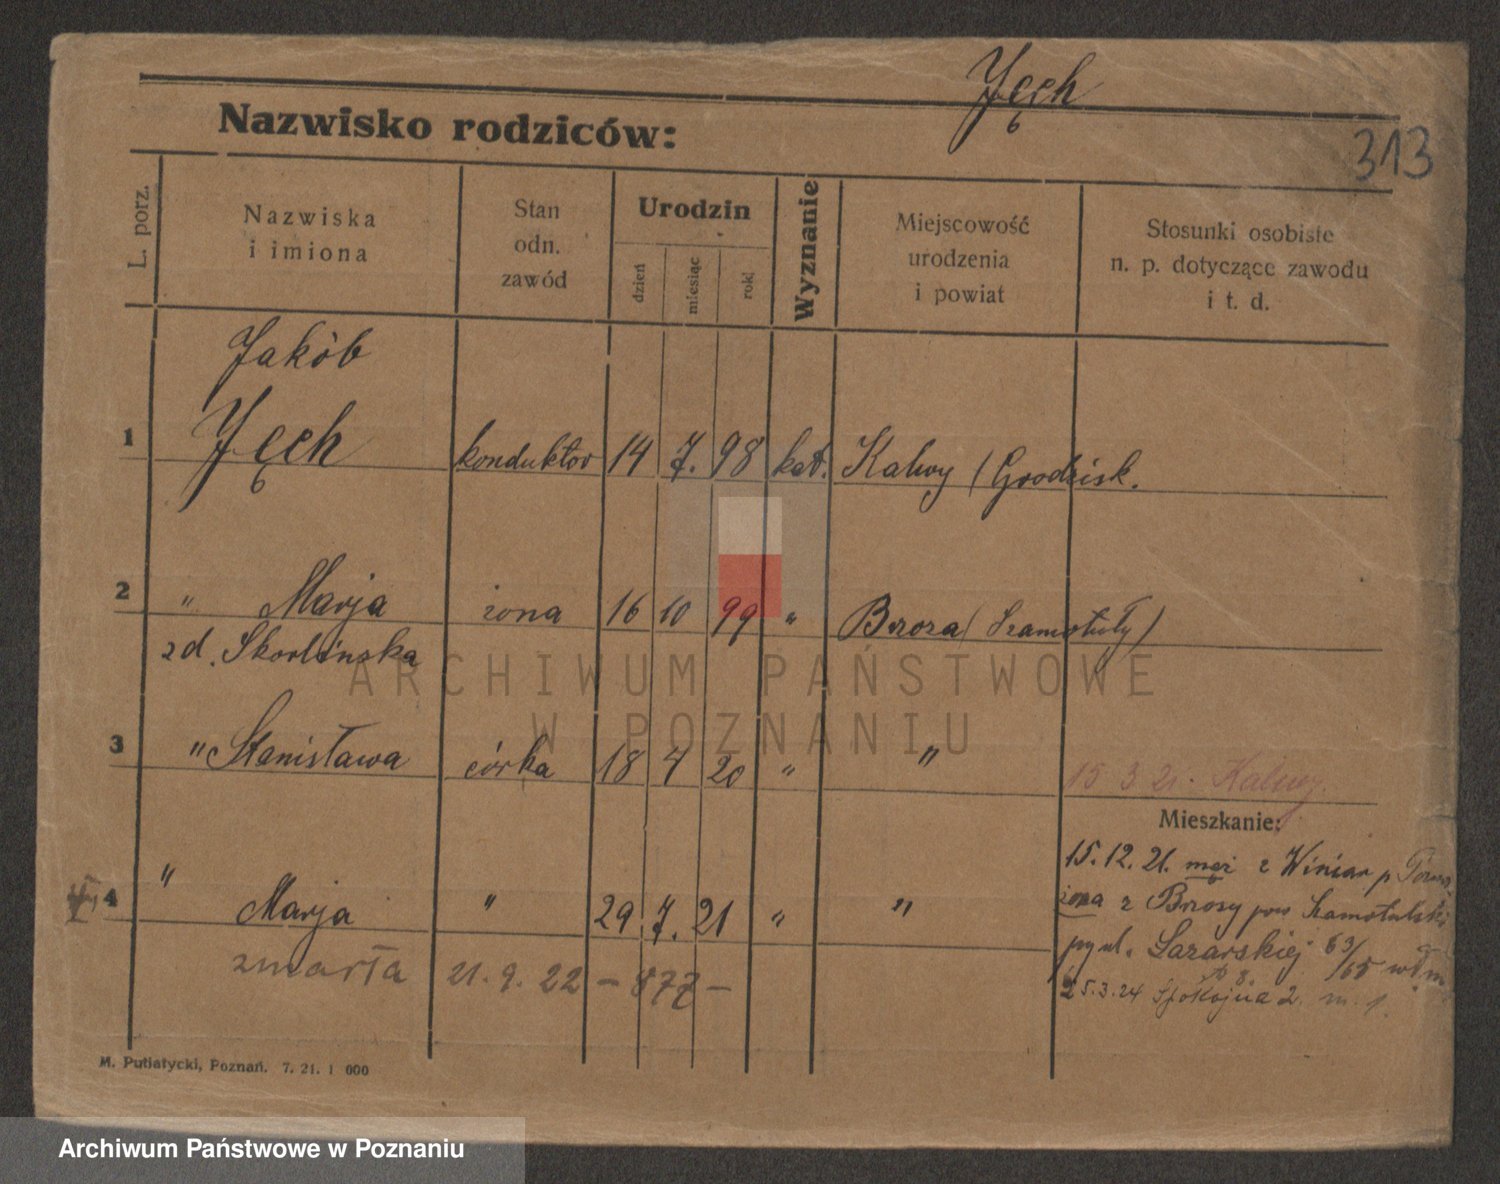 Jęch
313
Nazwisko rodziców:
L. porz.
Nazwiska
i imiona
Stan
odn.
zawód
Urodzin
dzień
miesiąc
rok
Wyznanie
Miejscowość
urodzenia
i powiat
Stosunki osobiste
n. p. dotyczące zawodu
i t. d.
Jakób
1 Jęch konduktor 14 7. 98 kat. Kalwy (Grodzisk.
2 " Marja żona 16 10 99 " Brzoza (Szamotuły)
zd. Skorlińska
3 " Stanisława córka 18 4 20 " " 15 3 21. Kalwy.
Mieszkanie:
15. 12. 21. mąż z Winiar p.
4 " Marja " 29 7. 21 " "
żona z Brzozy pow Szamotulski
przy ul. Łazarskiej 63/65
zmarła 21. 9. 22 – 877 –
25.3.24 Spokojna 2. m. 1.
M. Putiatycki, Poznań. 7. 21. 1 000
ARCHIWUM PAŃSTWOWE
W POZNANIU
Archiwum Państwowe w Poznaniu